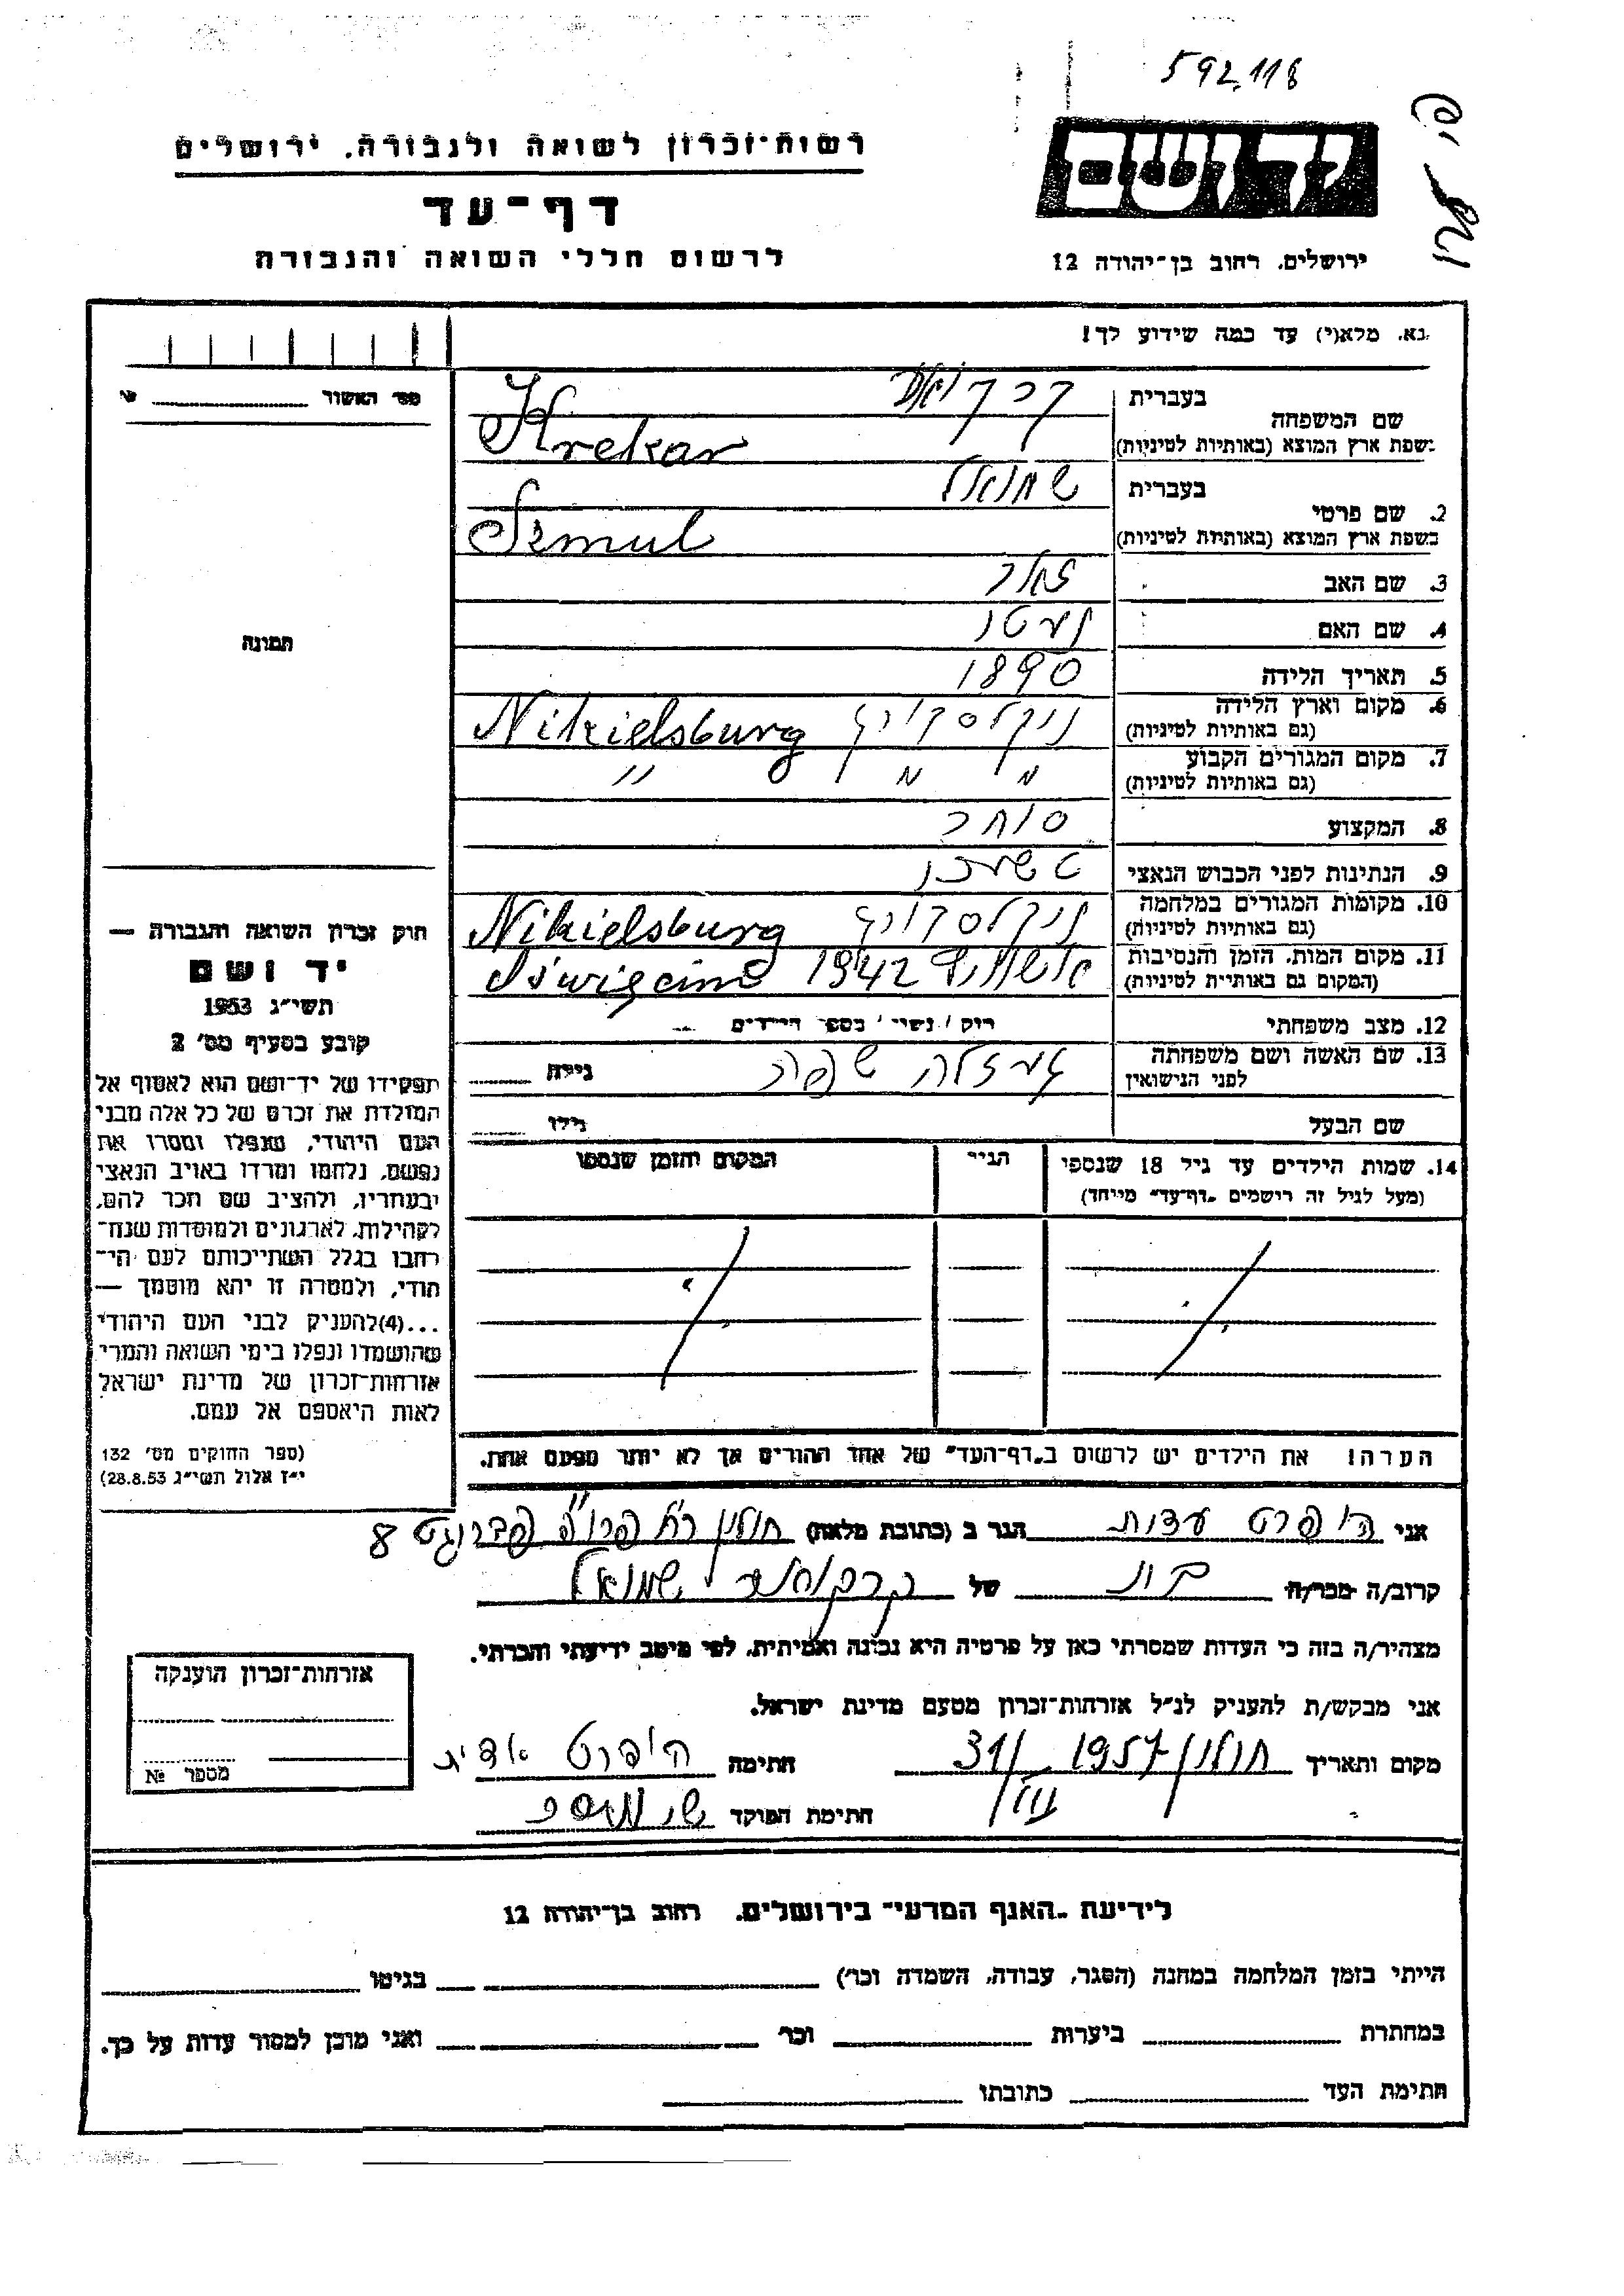 592,118
רשות-זכרון לשואה ולגבורה, ירושלים
דף-עד
לרשום חללי השואה והגבורה
יד ושם
ירושלים, רחוב בן-יהודה 12
נא, מלא(י) עד כמה שידוע לך!
שם המשפחה
בעברית
בשפת ארץ המוצא (באותיות לטיניות)
Krekar
2. שם פרטי
בעברית
שמואל
בשפת ארץ המוצא (באותיות לטיניות)
Szmul
3. שם האב
4. שם האם
5. תאריך הלידה 1890
6. מקום וארץ הלידה
(גם באותיות לטיניות)
ניקלסבורג Nikielsburg
7. מקום המגורים הקבוע
(גם באותיות לטיניות)
" " "
8. המקצוע סוחר
9. הנתינות לפני הכבוש הנאצי
10. מקומות המגורים במלחמה
(גם באותיות לטיניות)
ניקלסבורג Nikielsburg
11. מקום המות, הזמן והנסיבות
(המקום גם באותיות לטיניות)
1942 Oświęcim
12. מצב משפחתי
רוק / נשוי / מספר הילדים
13. שם האשה ושם משפחתה
לפני הנישואין
גילה
שם הבעל
גילו
14. שמות הילדים עד גיל 18 שנספו
(מעל לגיל זה רישמים "דף-עד" מייחד)
הגיל
המקום והזמן שנספו
הערה! את הילדים יש לרשום ב"דף-העד" של אחד ההורים אך לא יותר מפעם אחת.
מס' האשור
תמונה
חוק זכרון השואה והגבורה —
יד ושם
תשי"ג 1953
קובע בסעיף מס' 2
תפקידו של יד-ושם הוא לאסוף אל
המולדת את זכרם של כל אלה מבני
העם היהודי, שנפלו ומסרו את
נפשם, נלחמו ומרדו באויב הנאצי
ובעוזריו, ולהציב שם וזכר להם,
לקהילות, לארגונים ולמוסדות שנח-
רבו בגלל השתייכותם לעם הי-
הודי, ולמטרה זו יהא מוסמך —
...(4) להעניק לבני העם היהודי
שהושמדו ונפלו בימי השואה והמרי
אזרחות-זכרון של מדינת ישראל
לאות היאספם אל עמם.
(ספר החוקים מס' 132
י"ז אלול תשי"ג 28.8.53)
אני הופרט
הגר ב (כתובת מלאה) חולון 8
קרוב/ה מכר/ה בת של שמואל
מצהיר/ה בזה כי העדות שמסרתי כאן על פרטיה היא נכונה ואמיתית, לפי מיטב ידיעתי והכרתי.
אני מבקש/ת להעניק לנ"ל אזרחות-זכרון מטעם מדינת ישראל.
מקום ותאריך חולון 1957 31/VII
חתימה הופרט
חתימת הפוקד
אזרחות-זכרון הוענקה
מספר №
לידיעת "האגף המדעי" בירושלים, רחוב בן-יהודה 12
הייתי בזמן המלחמה במחנה (הסגר, עבודה, השמדה וכו') בגיטו
במחתרת ביערות וכו' ואני מוכן למסור עדות על כך.
חתימת העד כתובתו